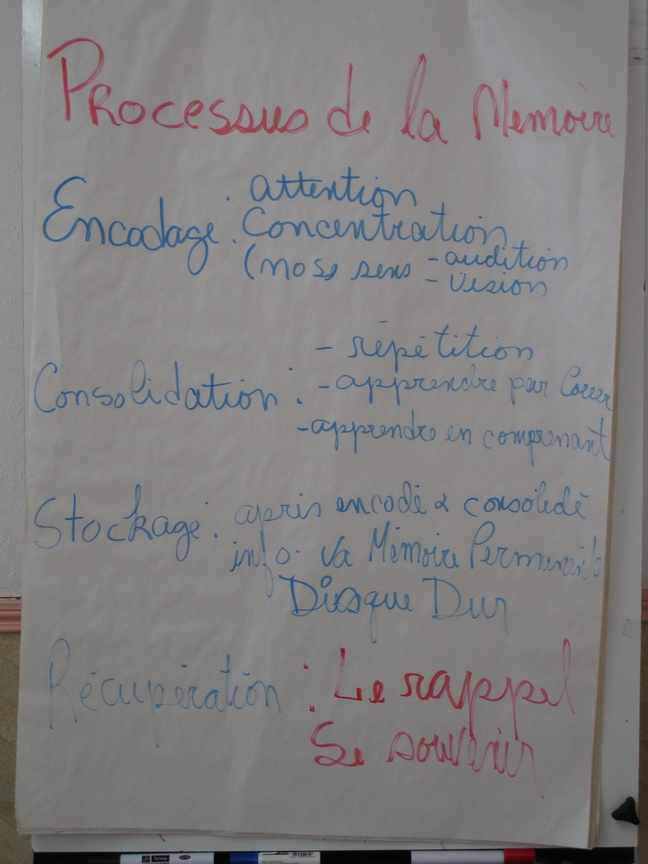 Processus de la Mémoire
Encodage : attention
Concentration
(nos 5 sens - audition
- vision
- répétition
Consolidation : - apprendre par Coeur
- apprendre en comprenant
Stockage : après encodé & consolidé
info. va Mémoire Permanente
Disque Dur
Récupération : Le rappel
Se souvenir